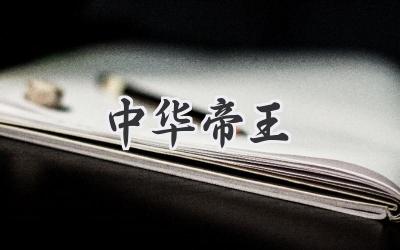 中华帝王